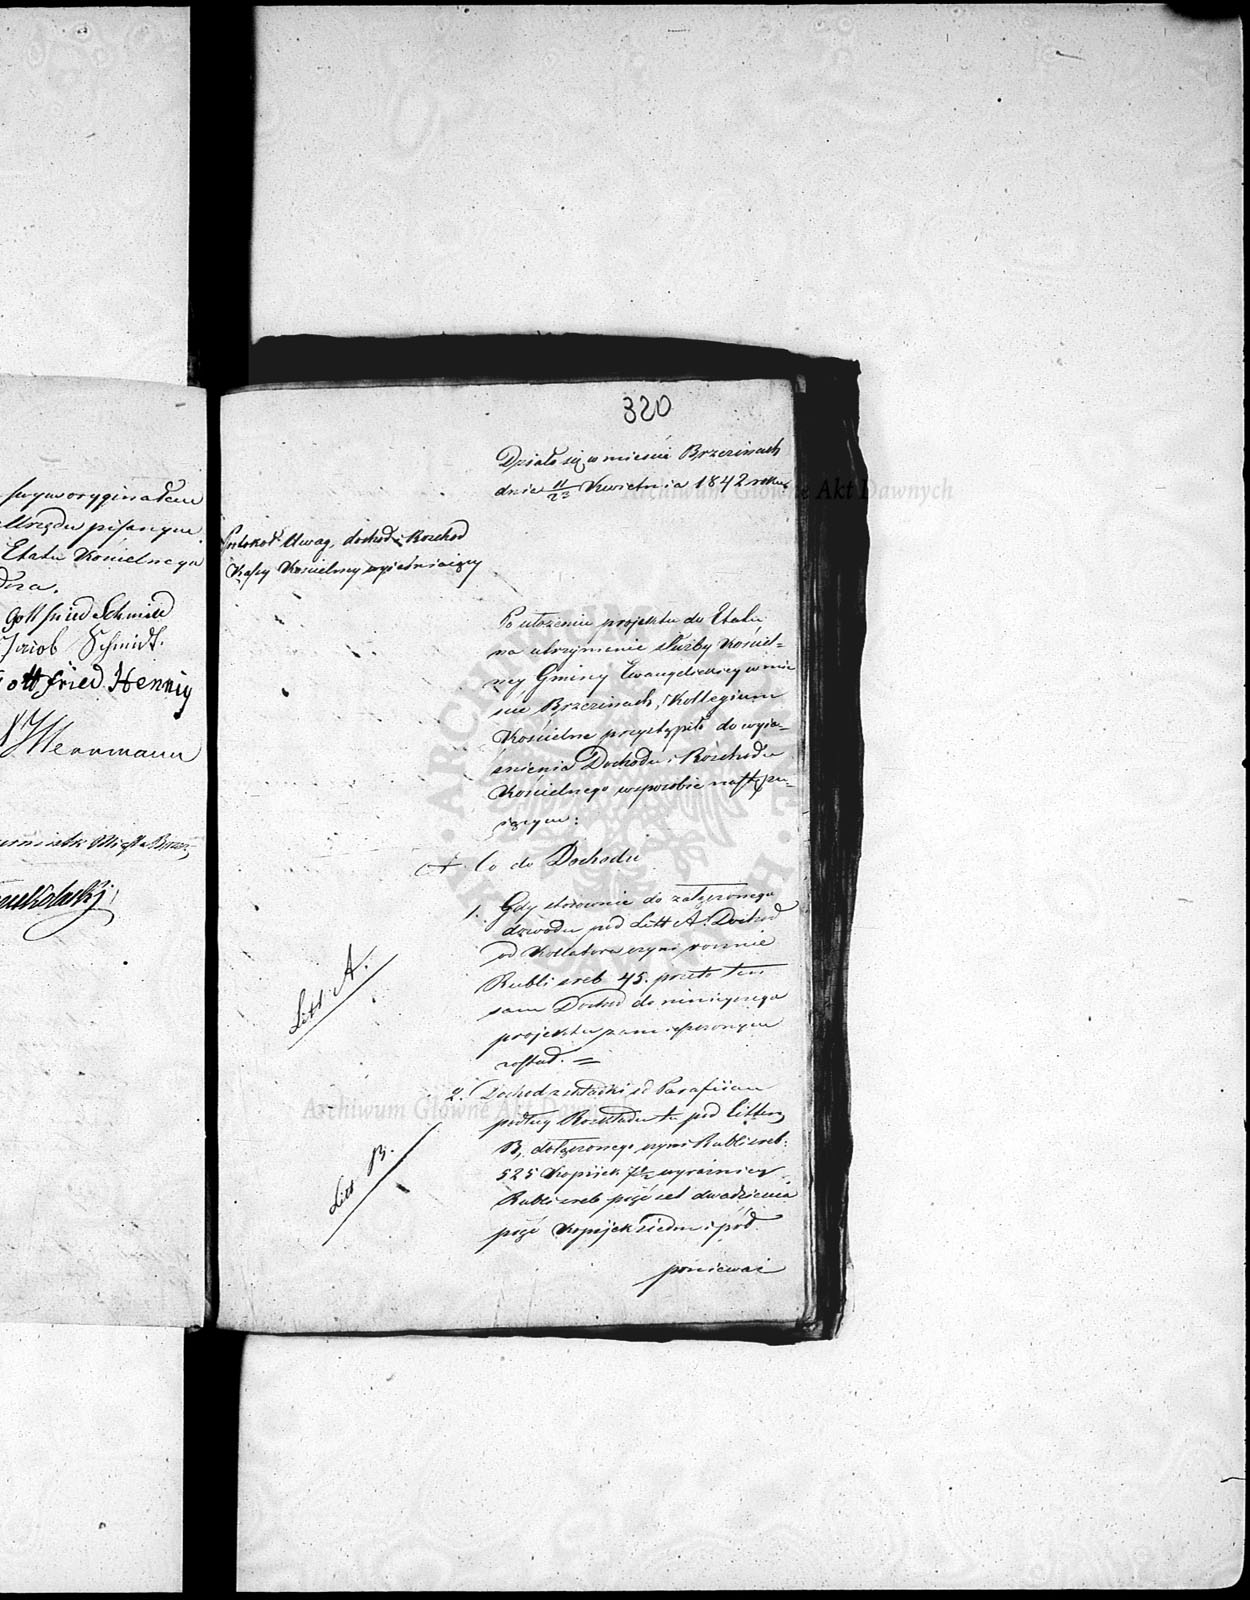 swym oryginałem
Urzędu pisanym
Etatu Kościelnego
Gottfried Schmidt
Jacob Schmidt.
Gottfried Hennig
Herrmann
Miasta Brzezin
320
Działo się w mieście Brzezinach
dnia 11/23 Kwietnia 1842 roku
Protokół Uwag, dochód i Rozchod
Kassy Kościelny wyjaśniaiący
Po ułożeniu projektu do Etatu
na utrzymienie służby Kościel=
ney Gminy Ewangelickiey w mie
ście Brzezinach, Kollegium
Kościelne przystąpiło do wyja=
śnienia Dochodu i Rozchodu
Kościelnego w sposobie nastepu=
iącym:
A Co do Dochodu
1. Gdy stosownie do załączonego
dowodu pod Litt A. Dochod
od Kollatora czyni rocznie
Rubli sreb 45. przeto ten
sam Dochod do ninieyszego
projektu zamieszczonym
został. =
Litt A.
2. Dochod z składki od Parafiian
podług Rozkładu tu pod Litterą
B, dołączonego czyni Rubli sreb:
525 Kopiiek 7½ wyraźniey
Rubli sreb pięćset dwadzieścia
pięć Kopijek siedm i pół
Litt B.
ponieważ
Archiwum Główne Akt Dawnych
Archiwum Główne Akt Dawnych
ARCHIWUM GŁÓWNE